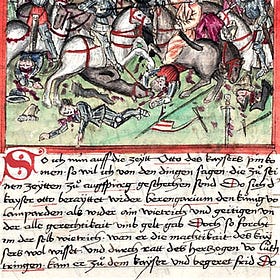 So ich nun auff die zeytt Otto des kaysers pin
men so wil ich von den dingen sagen die zu sei
nen zeytten zu augspurg geschechen send Do sich d
kayser otto berayttet wider berengarium den kunig vo
lamparden als wider ain wietrich und
der alle gerechtikait umb gelt gab Do so forcht
im der selb wietrich wan er die machtikait des kay
sers wol wisset Und durch ratt des hertzogen vo lu
tringen kam er zu dem kayser und begeret frid D